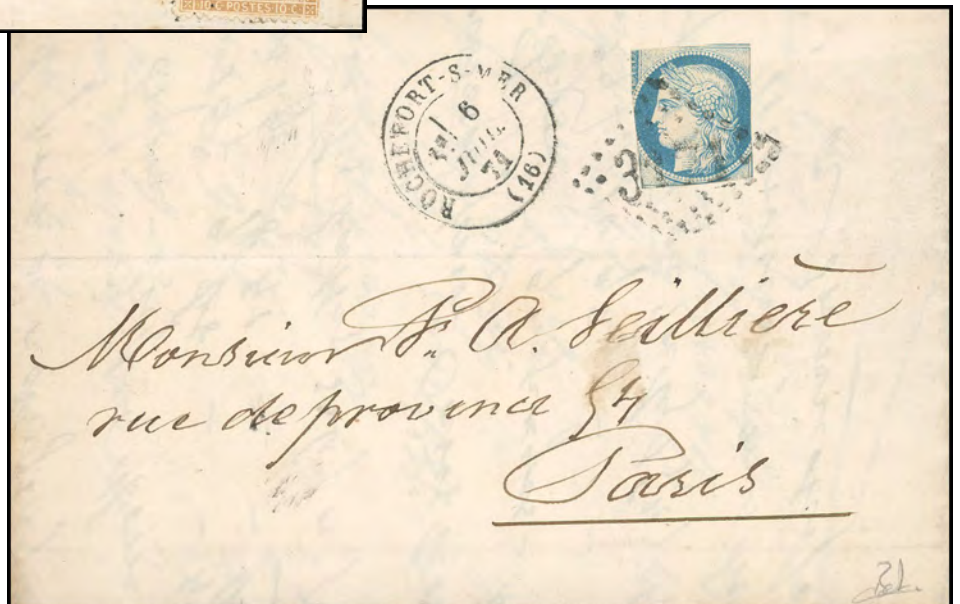 10·C·POSTES·10·C
ROCHEFORT-S-MER (16)
6
JUIL.
71
Monsieur F. A. Seillière
rue de provence 54
Paris